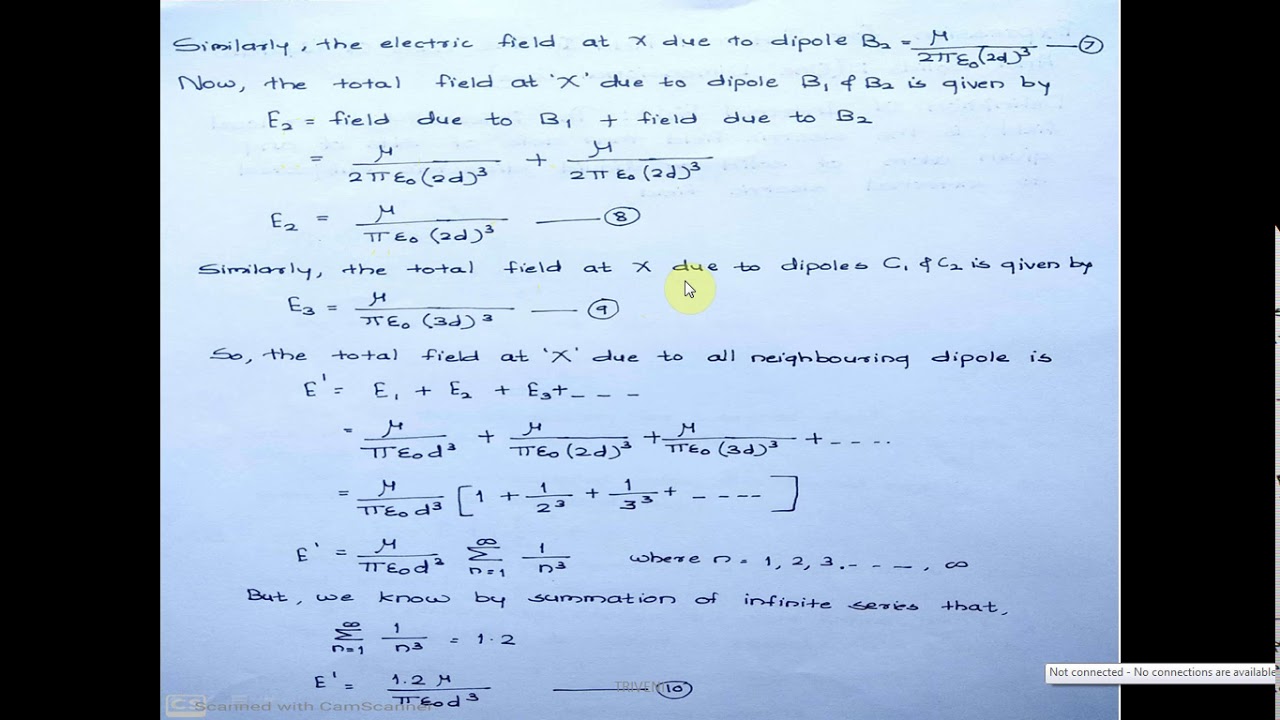 Similarly, the electric field at X due to dipole B₂ = μ / 2πε₀(2d)³ — ⑦
Now, the total field at 'X' due to dipole B₁ & B₂ is given by
E₂ = field due to B₁ + field due to B₂
= μ / 2πε₀(2d)³ + μ / 2πε₀(2d)³
E₂ = μ / πε₀(2d)³ — ⑧
Similarly, the total field at X due to dipoles C₁ & C₂ is given by
E₃ = μ / πε₀(3d)³ — ⑨
So, the total field at 'X' due to all neighbouring dipole is
E' = E₁ + E₂ + E₃ + - - -
= μ / πε₀d³ + μ / πε₀(2d)³ + μ / πε₀(3d)³ + - - - -
= μ / πε₀d³ [1 + 1/2³ + 1/3³ + - - - -]
E' = μ / πε₀d³ ∞ Σ n=1 1/n³ where n = 1, 2, 3. - - - , ∞
But, we know by summation of infinite series that,
∞ Σ n=1 1/n³ = 1.2
Not connected - No connections are available
E' = 1.2 μ / πε₀d³ — ⑩
TRIVENI
CS Scanned with CamScanner